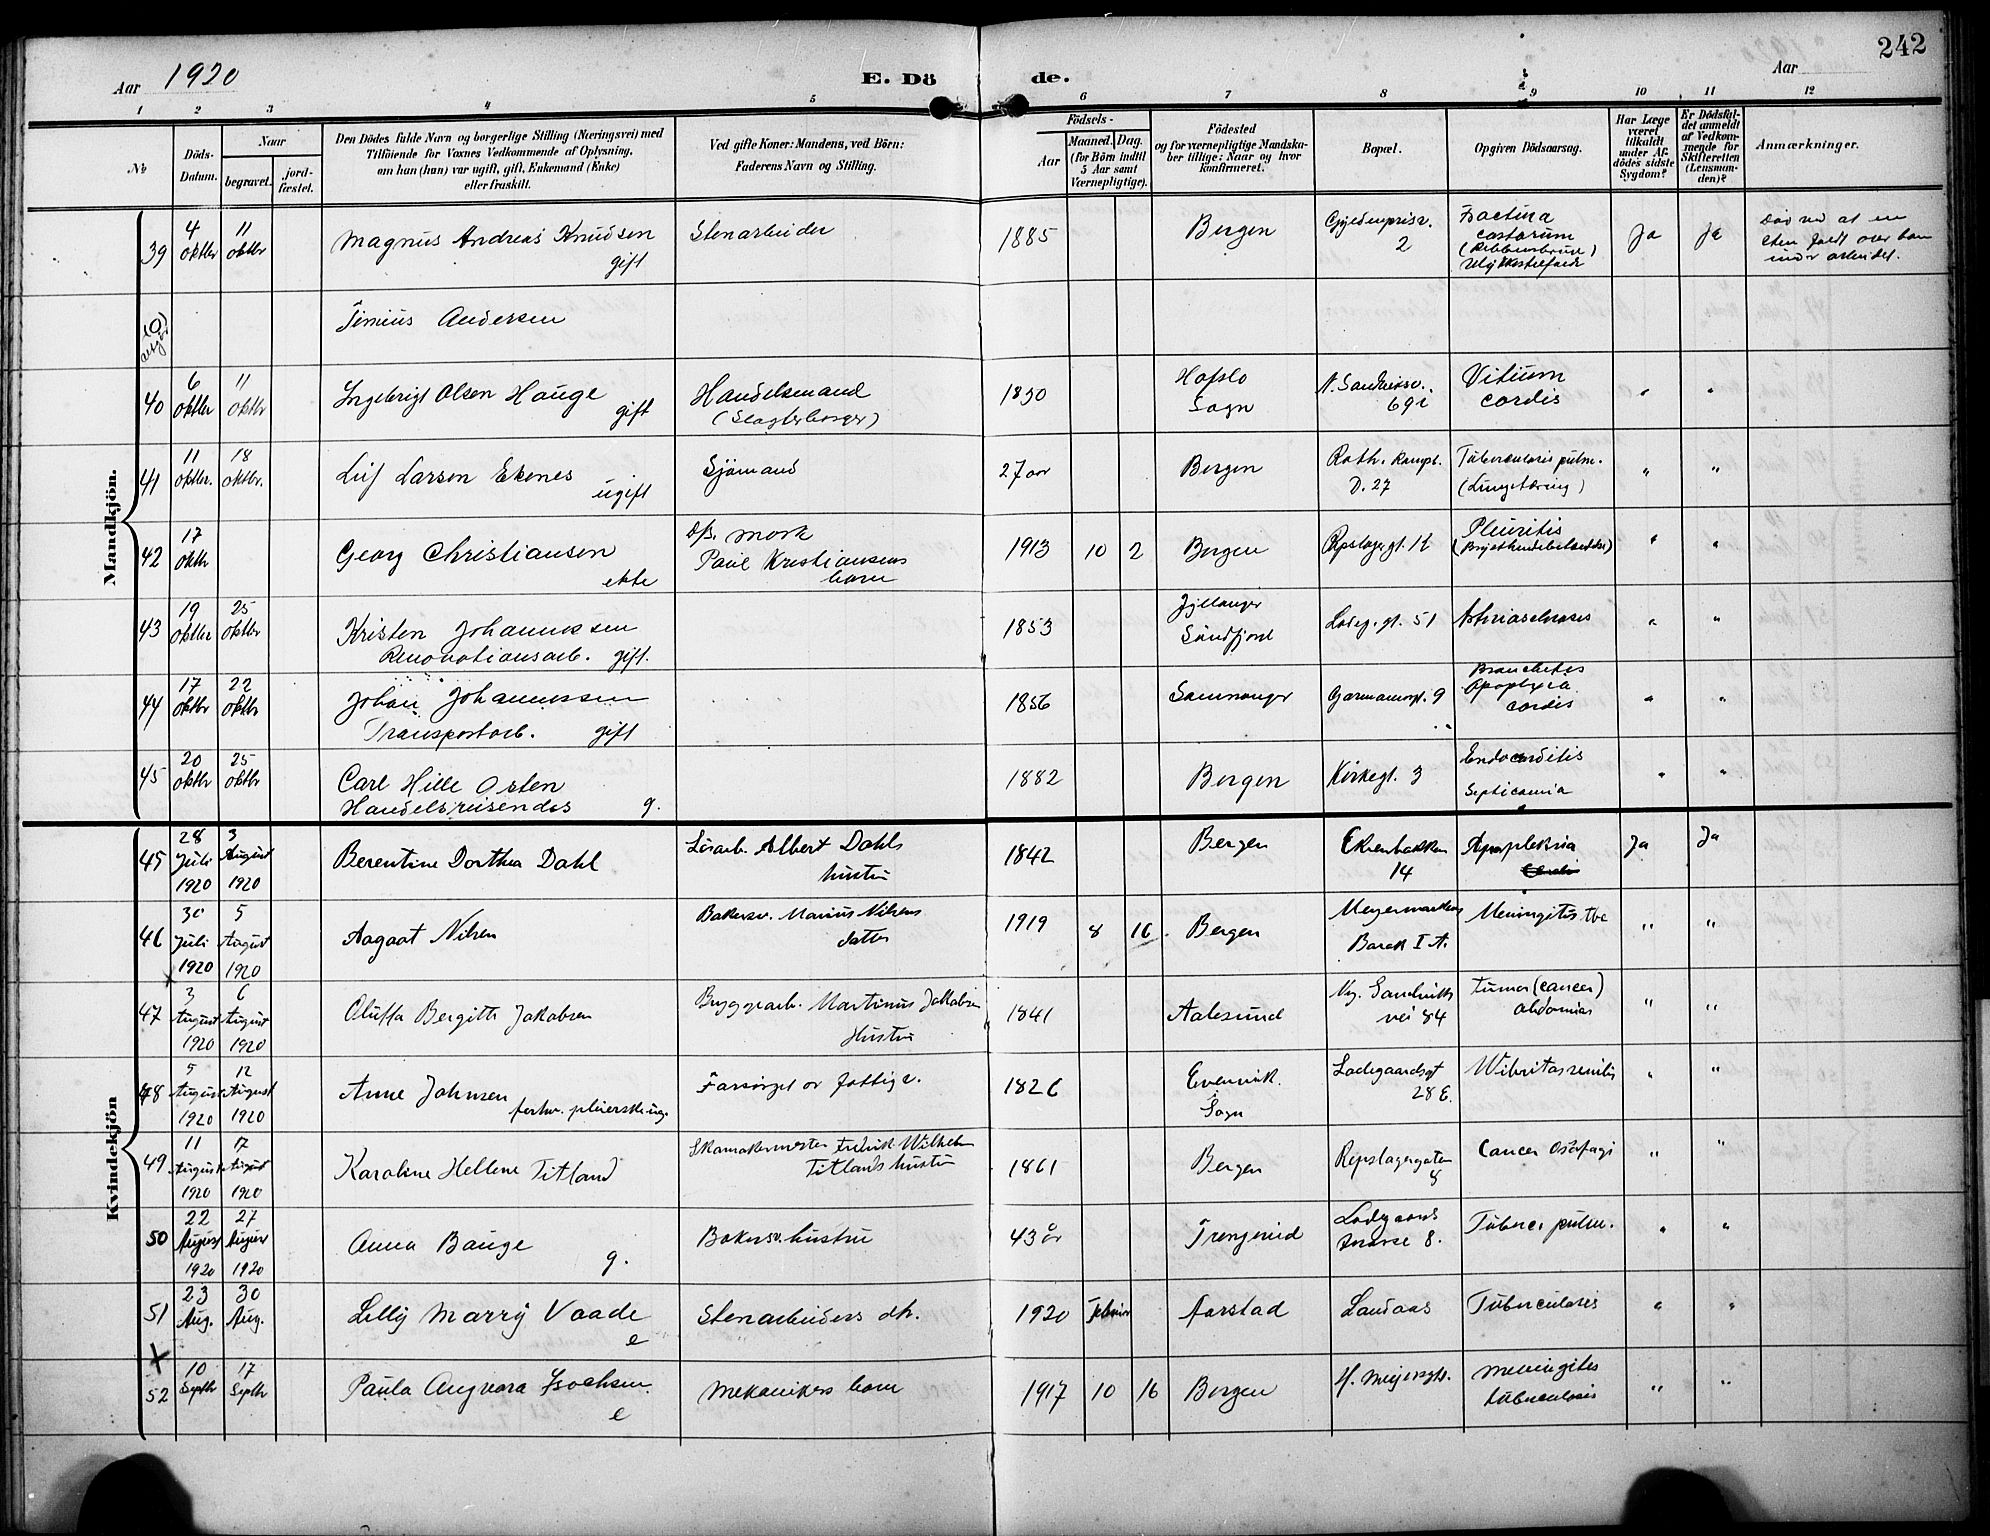 242
Aar 1920
E. Dö de.
Aar
1 2 3 4 5 6 7 8 9 10 11 12
No
Döds-
Datum.
Naar
begravet.
jord-
fæstet.
Den Dödes fulde Navn og borgerlige Stilling (Næringsvei) med
Tilföiende for Voxnes Vedkommende af Oplysning,
om han (hun) var ugift, gift, Enkemand (Enke)
eller fraskilt.
Ved gifte Koner: Mandens, ved Börn:
Faderens Navn og Stilling.
Födsels-
Aar
Maaned. Dag.
(for Börn indtil
5 Aar samt
Værnepligtige).
Födested
og for værnepligtige Mandska-
ber tillige: Naar og hvor
konfirmeret.
Bopæl.
Opgiven Dödsaarsag.
Har Læge
været
tilkaldt
under Af-
dödes sidste
Sygdom?
Er Dödsfal-
det anmeldt
af Vedkom-
mende for
Skifteretten
(Lensman-
den)?
Anmærkninger.
Mandkjön.
39
4 oktbr
11 oktbr
Magnus Andreas Knudsen
gift
Stenarbeider
1885
Bergen
2
costarum
Ja
Ja
Tinius Andersen
40
6 oktbr
11 oktbr
Ingebrigt Olsen Hauge
gift
Handelsmand
(Slagterborger)
1850
Hafslo
Sogn
N. Sandviksv.
69i
Vitium
cordis
"
"
41
11 oktbr.
18 oktbr.
Leif Larsen Ekenes
ugift
Sjömand
27 aar
Bergen
D. 27
Tuberculosis pulm.
(Lungetæring)
"
"
42
17 oktbr
Georg Christiansen
ekte
Paul Kristiansens
barn
1913 10 2
Bergen
Repslagergt. 12
Pleuritis
"
"
43
19 oktbr
25 oktbr
Kristen Johannessen
Renovationsarb. gift.
1853
Söndfjord
Ladeg.gt. 51
"
"
44
17 oktbr
22 oktbr
Johan Johannessen
Transportarb. gift
1856
Samnanger
9
Bronchitis
cordis
"
"
45
20 oktbr
25 oktbr
Carl Hille Osten
Handelsreisendes g.
1882
Bergen
Kirkegt. 3
Endocarditis
Septicæmia
"
"
Kvindekjön
45
28 Juli 1920
3 August 1920
Berentine Dorthea Dahl
Lösarb. Albert Dahls
hustru
1842
Bergen
14
Apoplexia
Ja
Ja
46
30 Juli 1920
5 August 1920
Aagot Nilsen
Bakersv. Marius Nilsens
datter
1919 8 16
Bergen
Meyermarken
Barak I A.
Meningitis tbc
"
"
47
3 August 1920
6 August 1920
Oluffa Bergitte Jakobsen
Bryggearb. Martinus Jakobsen
Hustru
1841
Aalesund
Ny. Sandviks
vei 84
Tumor (cancer)
abdominis
"
"
48
5 August 1920
12 August 1920
Anne Johnsen
Forsörget av fattigv.
1826
Evenvik.
Sogn
Ladegaardsgt
28 E.
"
"
49
11 August 1920
17 August 1920
Karoline Hellene Titland
Skomakermester Fredrik Wilhelm
Titlands hustru
1861
Bergen
Repslagergaten
Cancer Osöfagi
"
"
50
22 August 1920
27 August 1920
Anna Bauge
g.
Bakersv. hustru
43 år
Trengereid
8.
Tuberc. pulm.
"
"
51
23 Aug.
30 Aug.
Lelly Marry Vaade
e
Stenarbeiders dtr.
1920 Februar
Aarstad
Landaas
Tuberculosis
"
"
52
10 Septbr
17 Septbr
Paula Angvara Isachsen
e
Mekanikers barn
1917 10 16
Bergen
H. Meyersgt.
Meningites
tuberculosis
"
"